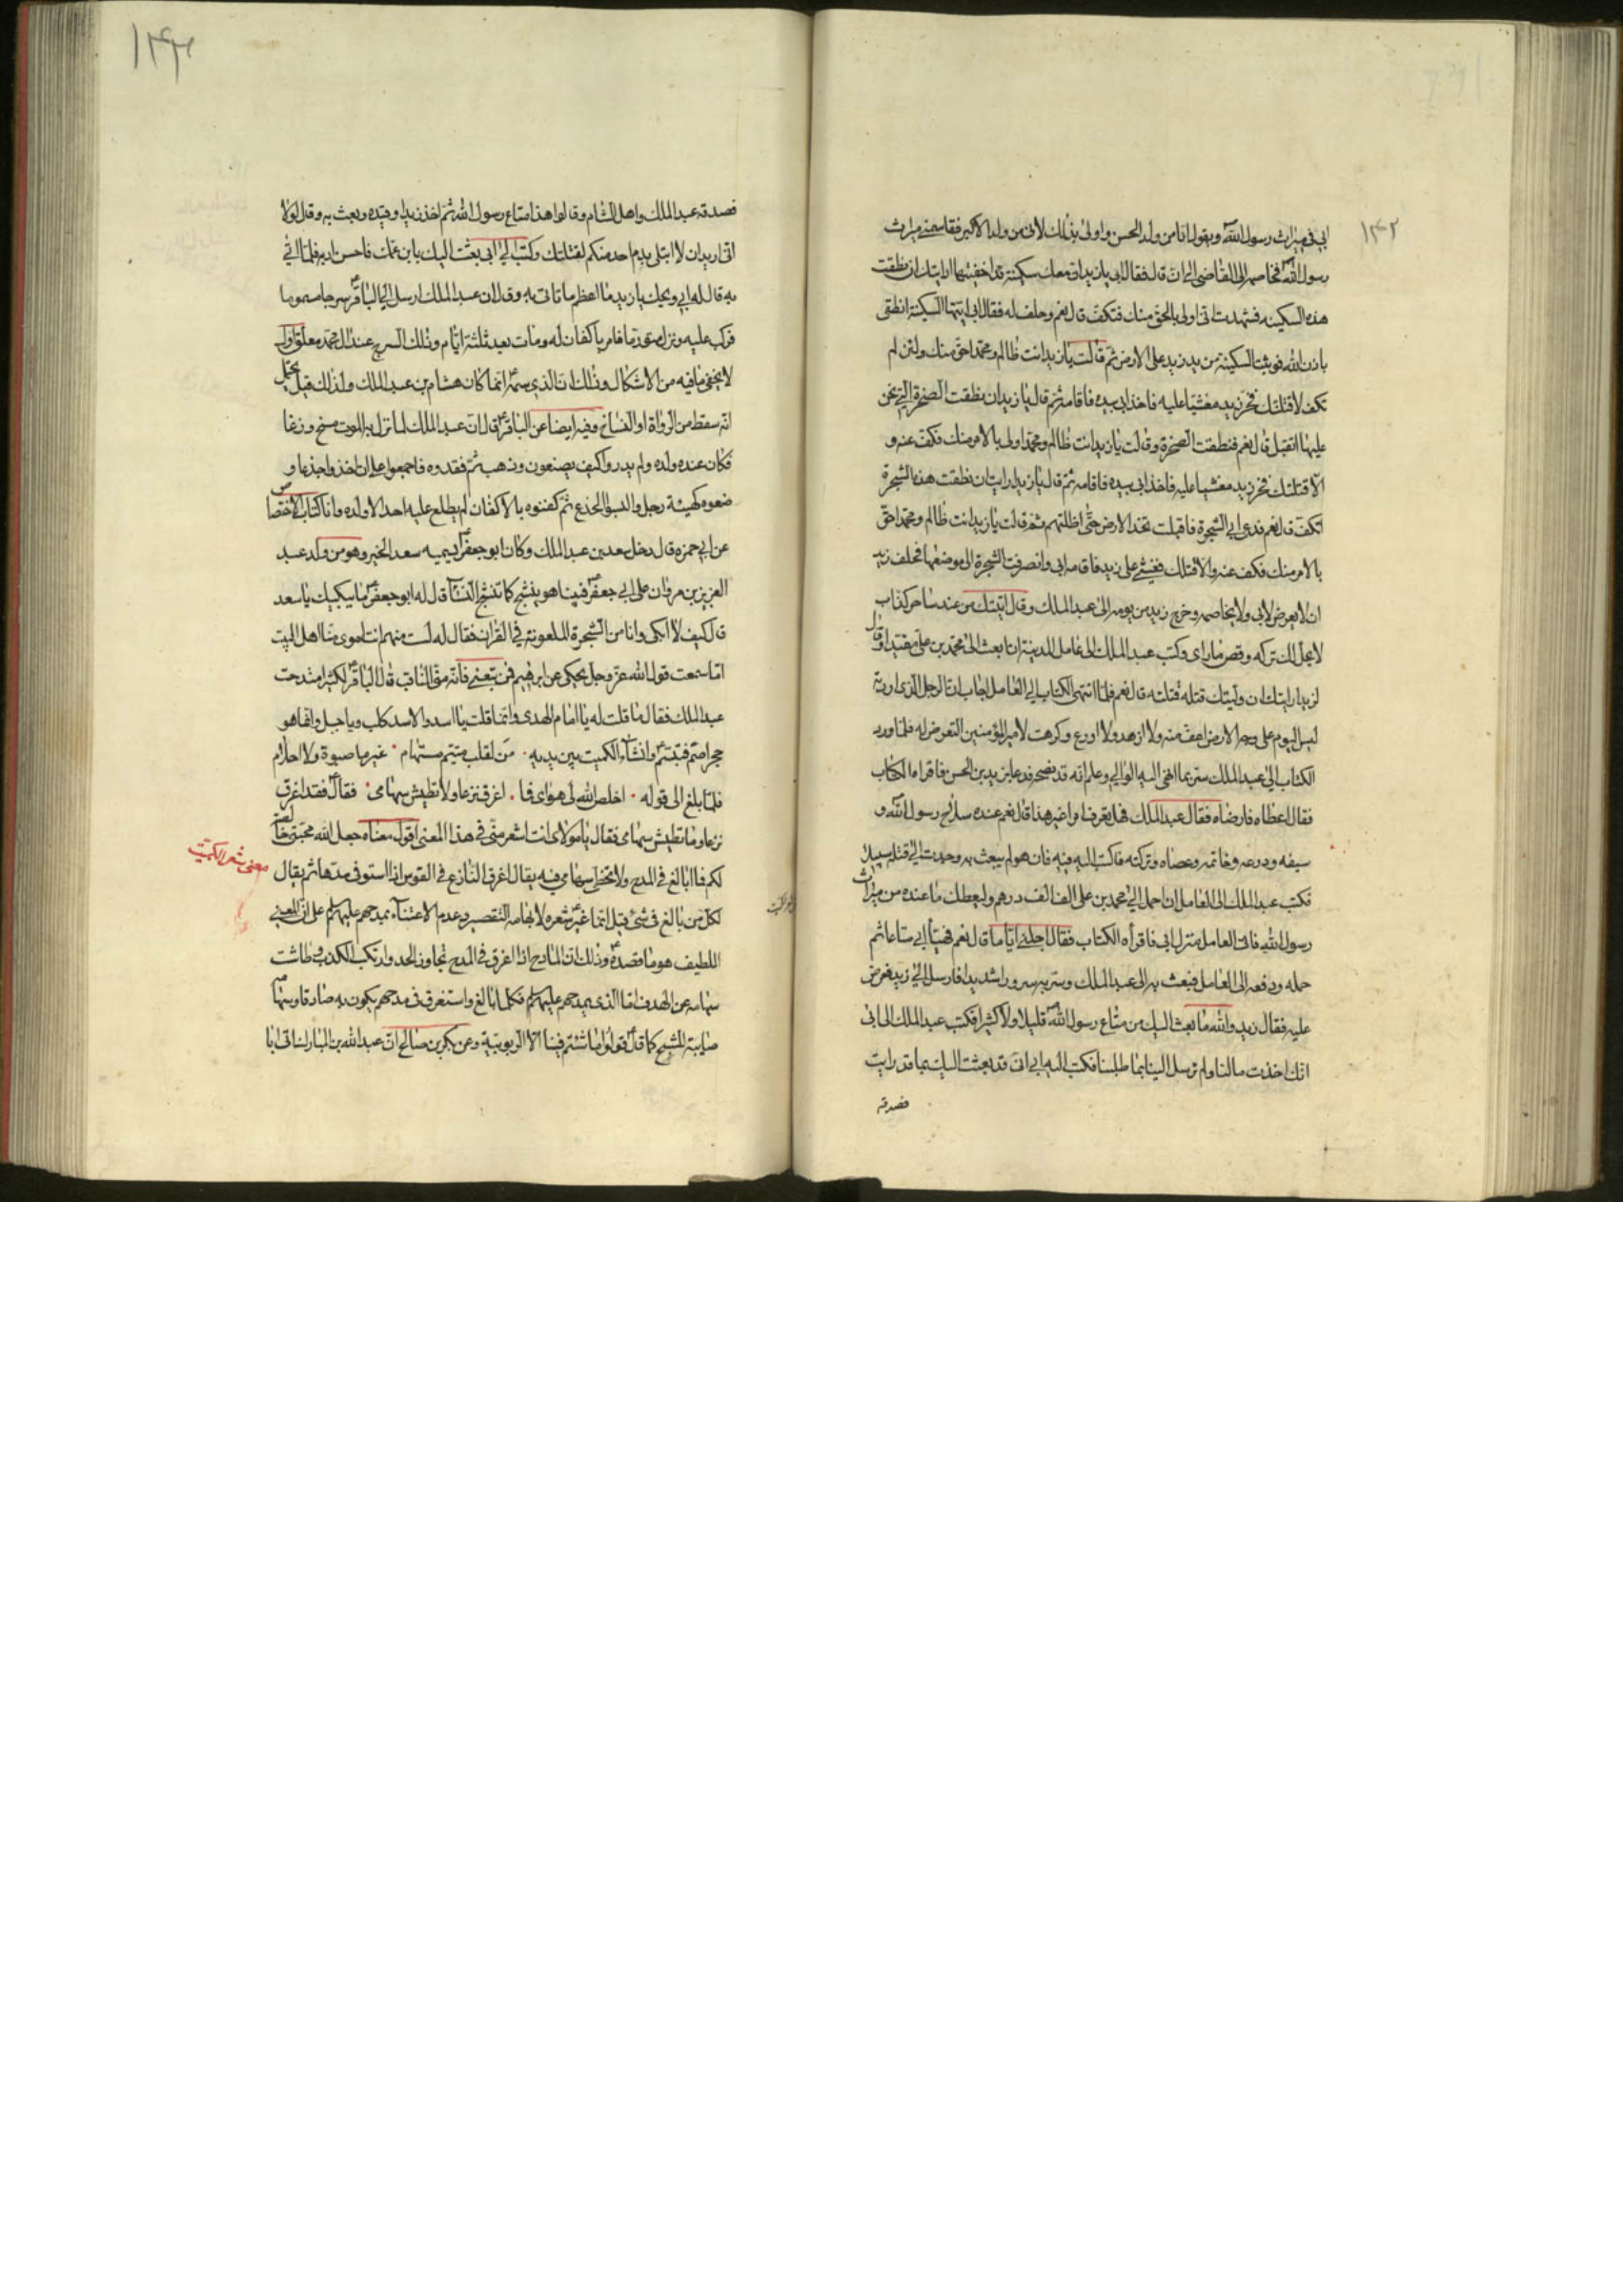 ١٤٢
ابي في ميراث رسول الله ويقول انا من ولد الحسن واولى بذلك لانى من ولد الاكبر فقاسمنى ميراث
رسول الله فخاصمه الى القاضى الى ان قال فقال ابى يا زيد ان معك سكينة قد اخفيتها ارايتك ان نطقت
هذه السكينه فشهدت انى اولى بالحق منك فتكف قال نعم وحلف له فقال ابى ايتها السكينة انطقى
باذن الله فوثبت السكينة من يد زيد على الارض ثم قالت يا زيد انت ظالم ومحمد احق منك ولئن لم
تكف لاقتلنك فخر زيد مغشيا عليه فاخذ ابى بيده فاقامه ثم قال يا زيد ان نطقت الصخرة التى نحن
عليها اتقبل قال نعم فنطقت الصخرة وقالت يا زيد انت ظالم ومحمد اولى بالامر منك فكف عنه و
الا قتلتك فخر زيد مغشيا عليه فاخذ ابى بيده فاقامه ثم قال يا زيد ارايت ان نطقت هذه الشجرة
اتكف قال نعم فدعى ابى الشجرة فاقبلت تخد الارض حتى اظلتهم ثم قالت يا زيد انت ظالم ومحمد احق
بالامر منك فكف عنه والا قتلتك فغشى على زيد فاقامه ابى وانصرفت الشجرة الى موضعها فحلف زيد
ان لا يعرض لابى ولا يخاصمه وخرج زيد من يومه الى عبد الملك وقال اتيتك من عند ساحر كذاب
لا يحل لك تركه وقص ما راى وكتب عبد الملك الى عامل المدينة ان ابعث الى محمد بن على مقيدا وقال
لزيد ارايتك ان وليتك قتله قتلته قال نعم فلما انتهى الكتاب الى العامل اجاب ان الرجل الذى اردته
ليس اليوم على وجه الارض اعف منه ولا ازهد ولا اورع وكرهت لامير المؤمنين التعرض له فلما ورد
الكتاب الى عبد الملك سر بما انهى اليه الوالى وعلم انه قد نصحه فدعا بزيد بن الحسن فاقراه الكتاب
فقال اعطاه فارضاه فقال عبد الملك فهل تعرف امرا غير هذا قال نعم عنده سلاح رسول الله و
سيفه ودرعه وخاتمه وعصاه وتركته فاكتب اليه فيه فان هو لم يبعث به وجدت الى قتله سبيلا
فكتب عبد الملك الى العامل ان احمل الى محمد بن على الف الف درهم وليعطك ما عنده من ميراث
رسول الله فاتى العامل منزل ابى فاقرأه الكتاب فقال اجلنى اياما قال نعم فهيأ ابى متاعا ثم
حمله ودفعه الى العامل فبعث به الى عبد الملك وسر به سرورا شديدا فارسل الى زيد فعرض
عليه فقال زيد والله ما بعث اليك من متاع رسول الله قليلا ولا كثيرا فكتب عبد الملك الى ابى
انك اخذت مالنا ولم ترسل الينا بما طلبنا فكتب اليه ابى انى قد بعثت اليك بما قد رايت
فصدقه
١٤٣
فصدقه عبد الملك واهل الشام وقالوا هذا متاع رسول الله ثم اخذ زيدا وقيده وبعث به وقال لولا
انى اريد ان لا ابتلى بدم احد منكم لقتلتك وكتب الى ابى بعثت اليك بابن عمك فاحسن ادبه فلما اتى
به قال له ابى ويحك يا زيد ما اعظم ما تاتى به وقال ان عبد الملك ارسل الى الباقر سرجا مسموما
فركب عليه ونزل متورما فامر باكفان له ومات بعد ثلثة ايام وذلك السرج عند ال محمد معلق اقول
لا يخفى ما فيه من الاشكال وذلك ان الذى سمه انما كان هشام بن عبد الملك ولذلك قيل يحتمل
انه سقط من الرواة او النساخ وفيه ايضا عن الباقر قال ان عبد الملك لما نزل به الموت مسخ وزغا
فكان عنده ولده ولم يدروا كيف يصنعون وذهب ثم فقدوه فاجمعوا على ان اخذوا جذعا و
صنعوه كهيئة رجل والبسوا الجذع ثم كفنوه بالاكفان لم يطلع عليه احد الا ولده وانا كتاب الاختصاص
عن ابى حمزه قال دخل سعد بن عبد الملك وكان ابو جعفر يسميه سعد الخير وهو من ولد عبد
العزيز بن مروان على ابى جعفر فبينا هو ينشج كما تنشج النسآء قال له ابو جعفر ما يبكيك يا سعد
قال كيف لا ابكى وانا من الشجرة الملعونة فى القران فقال له لست منهم انت اموى منا اهل البيت
اما سمعت قول الله عز وجل يحكى عن ابرهيم فمن تبعنى فانه منى الثانى قال الباقر لكثير امتدحت
عبد الملك فقال ما قلت له يا امام الهدى وانما قلت يا اسد والاسد كلب ويا جبل وانما هو
حجر اصم فتبسم وانشاء الكميت بين يديه • من لقلب متيم مستهام • غير ما صبوة ولا احلام
فلما بلغ الى قوله • اخلص الله لى هواى فما • اغرق نزعا ولا تطيش سهامى • فقال فقد اغرق
نزعا وما تطيش سهامى فقال يا مولاى انت اشعر منى فى هذا المعنى اقول معناه جعل الله محبتى خالصة
لكم فما ابالغ فى المدح ولا تخطى سهامى فيه يقال اغرق النازع فى القوس اذا استوفى مدها ثم يقال
لكل من بالغ فى شىء قيل انما غير شعره لايهامه التقصير وعدم الاعتنآء بمدحهم عليهم السلم على ان المعنى
اللطيف هو ما قصده وذلك ان المادح اذا اغرق فى المدح تجاوز الحد وارتكب الكذب وطاشت
سهامه عن الهدف اما الذى يمدحهم عليهم السلم فكلما بالغ واستغرق فى مدحهم يكون به صادقا وسهامه
صايبة للشبح كما قال قولوا ما شئتم فينا الا الربوبية وعن بكر بن صالح ان عبد الله بن المبارك اتى ابا
معنى شعر الكميت